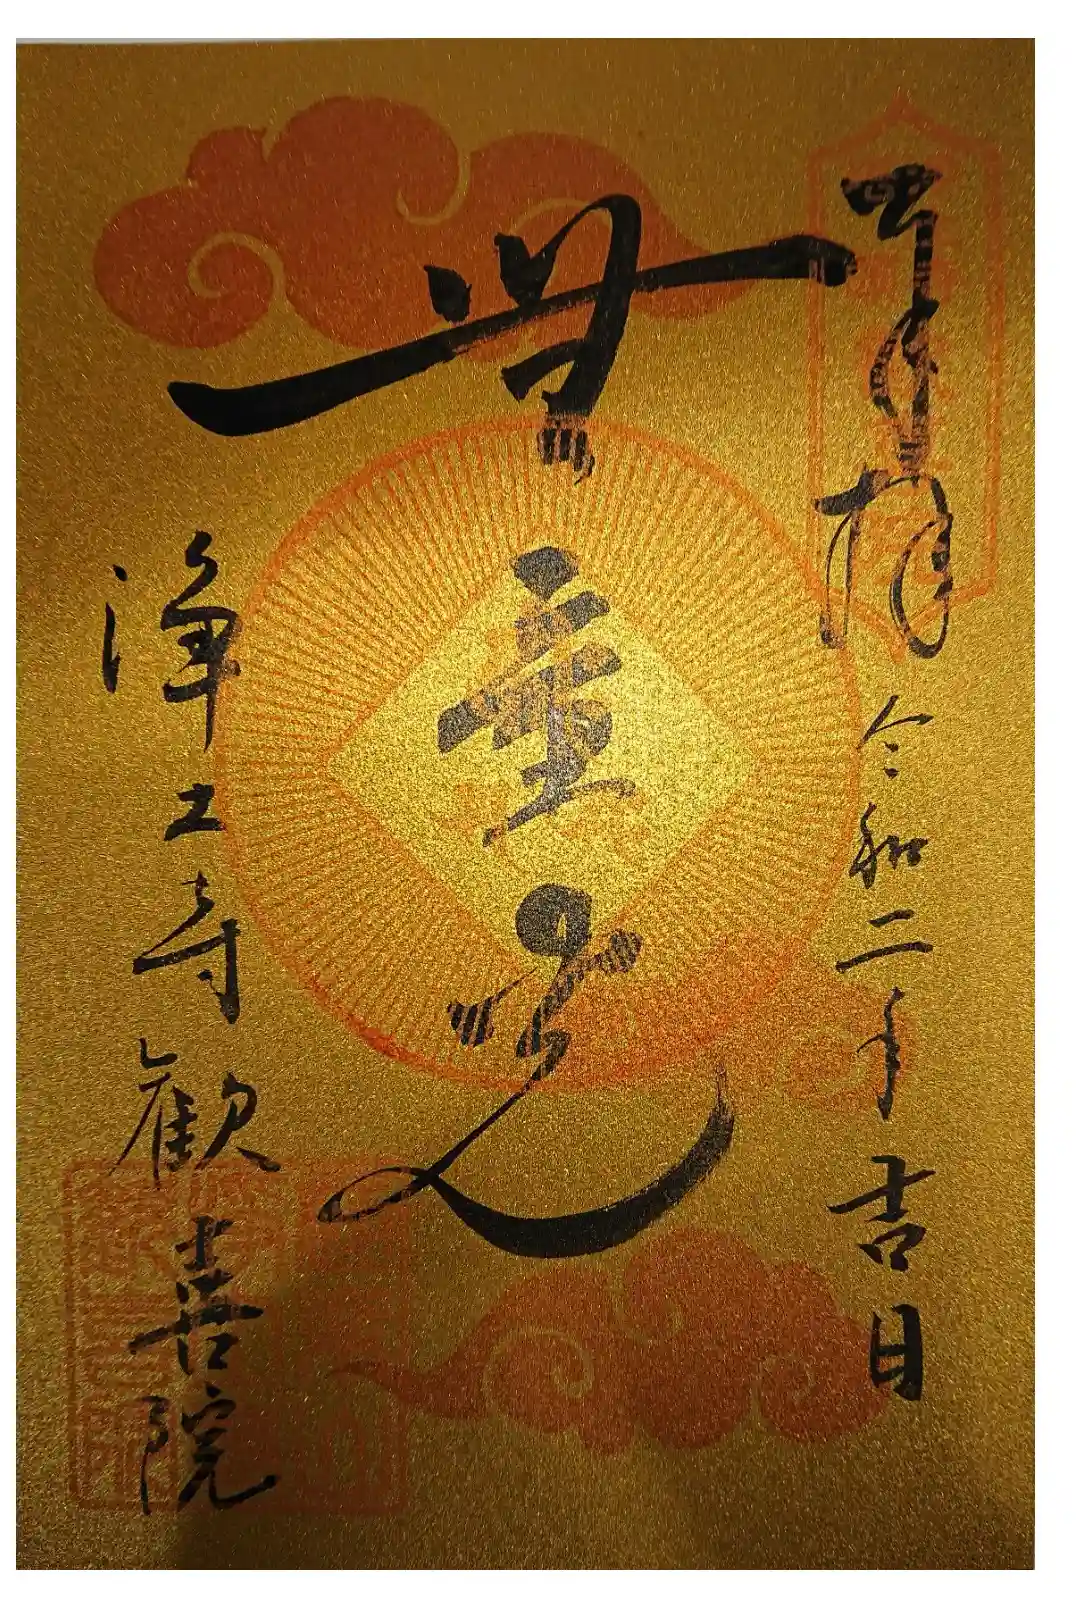 奉拝 令和二年吉日
無量光
浄土寺 歓喜院